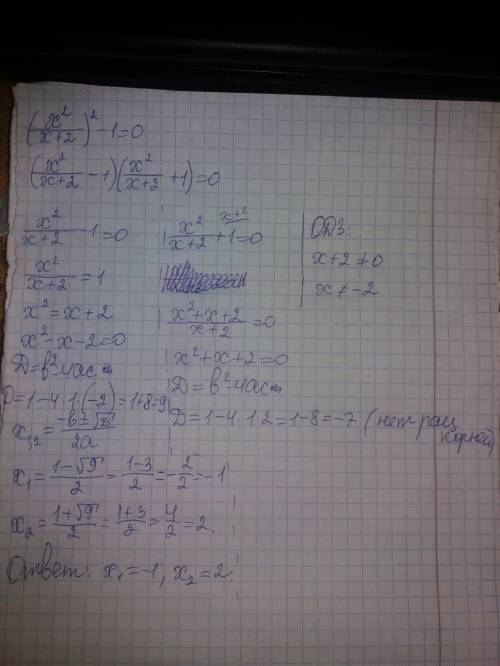 (x²/(x+2))² - 1 = 0
(x²/(x+2) - 1)(x²/(x+2) + 1) = 0
x²/(x+2) - 1 = 0
x²/(x+2) = 1
x² = x + 2
x² - x - 2 = 0
D = b² - 4ac
D = 1 - 4·1·(-2) = 1 + 8 = 9
x₁,₂ = (-b ± √D)/2a
x₁ = (1 - √9)/2 = (1 - 3)/2 = -2/2 = -1
x₂ = (1 + √9)/2 = (1 + 3)/2 = 4/2 = 2.
x²/(x+2) + 1 = 0
x+2
(x² + x + 2)/(x + 2) = 0
x² + x + 2 = 0
D = b² - 4ac
D = 1 - 4·1·2 = 1 - 8 = -7 (нет рац. корней)
ОДЗ:
x + 2 ≠ 0
x ≠ -2
Ответ: x₁ = -1, x₂ = 2.